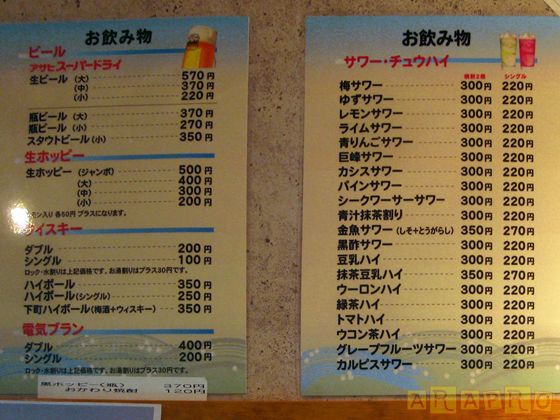 お飲み物
ビール
アサヒスーパードライ
生ビール (大) 570円
(中) 370円
(小) 220円
瓶ビール (大) 370円
瓶ビール (小) 270円
スタウトビール (小) 350円
生ホッピー
生ホッピー (ジャンボ) 500円
(大) 400円
(中) 300円
(小) 200円
モン入り 各50円 プラスになります。
イスキー
ダブル 200円
シングル 100円
ロック・水割りは上記価格です。お湯割りはプラス30円です。
ハイボール 350円
ハイボール(シングル) 250円
下町ハイボール(梅酒+ウィスキー) 350円
電気ブラン
ダブル 400円
シングル 200円
ロック・水割りは上記価格です。お湯割りはプラス30円です。
黒ホッピー(瓶) 370円
おかわり焼酎 120円
お飲み物
サワー・チュウハイ
焼酎2倍 シングル
梅サワー 300円 220円
ゆずサワー 300円 220円
レモンサワー 300円 220円
ライムサワー 300円 220円
青りんごサワー 300円 220円
巨峰サワー 300円 220円
カシスサワー 300円 220円
パインサワー 300円 220円
シークワーサーサワー 300円 220円
青汁抹茶割り 300円 220円
金魚サワー (しそ+とうがらし) 350円 270円
黒酢サワー 300円 220円
豆乳ハイ 300円 220円
抹茶豆乳ハイ 350円 270円
ウーロンハイ 300円 220円
緑茶ハイ 300円 220円
トマトハイ 300円 220円
ウコン茶ハイ 300円 220円
グレープフルーツサワー 300円 220円
カルピスサワー 300円 220円
ARAPRO